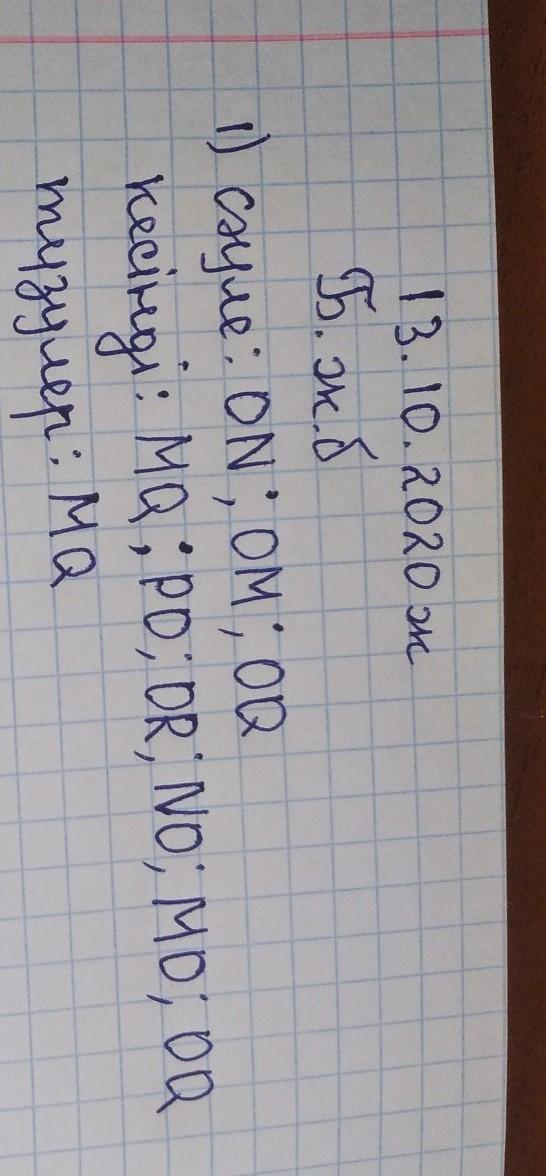 13.10.2020 ж
Б.ж.б
1) сәуле: ON; OM; OQ
кесінді: MQ; PO; OR; NO; MO; OQ
түзулер: MQ